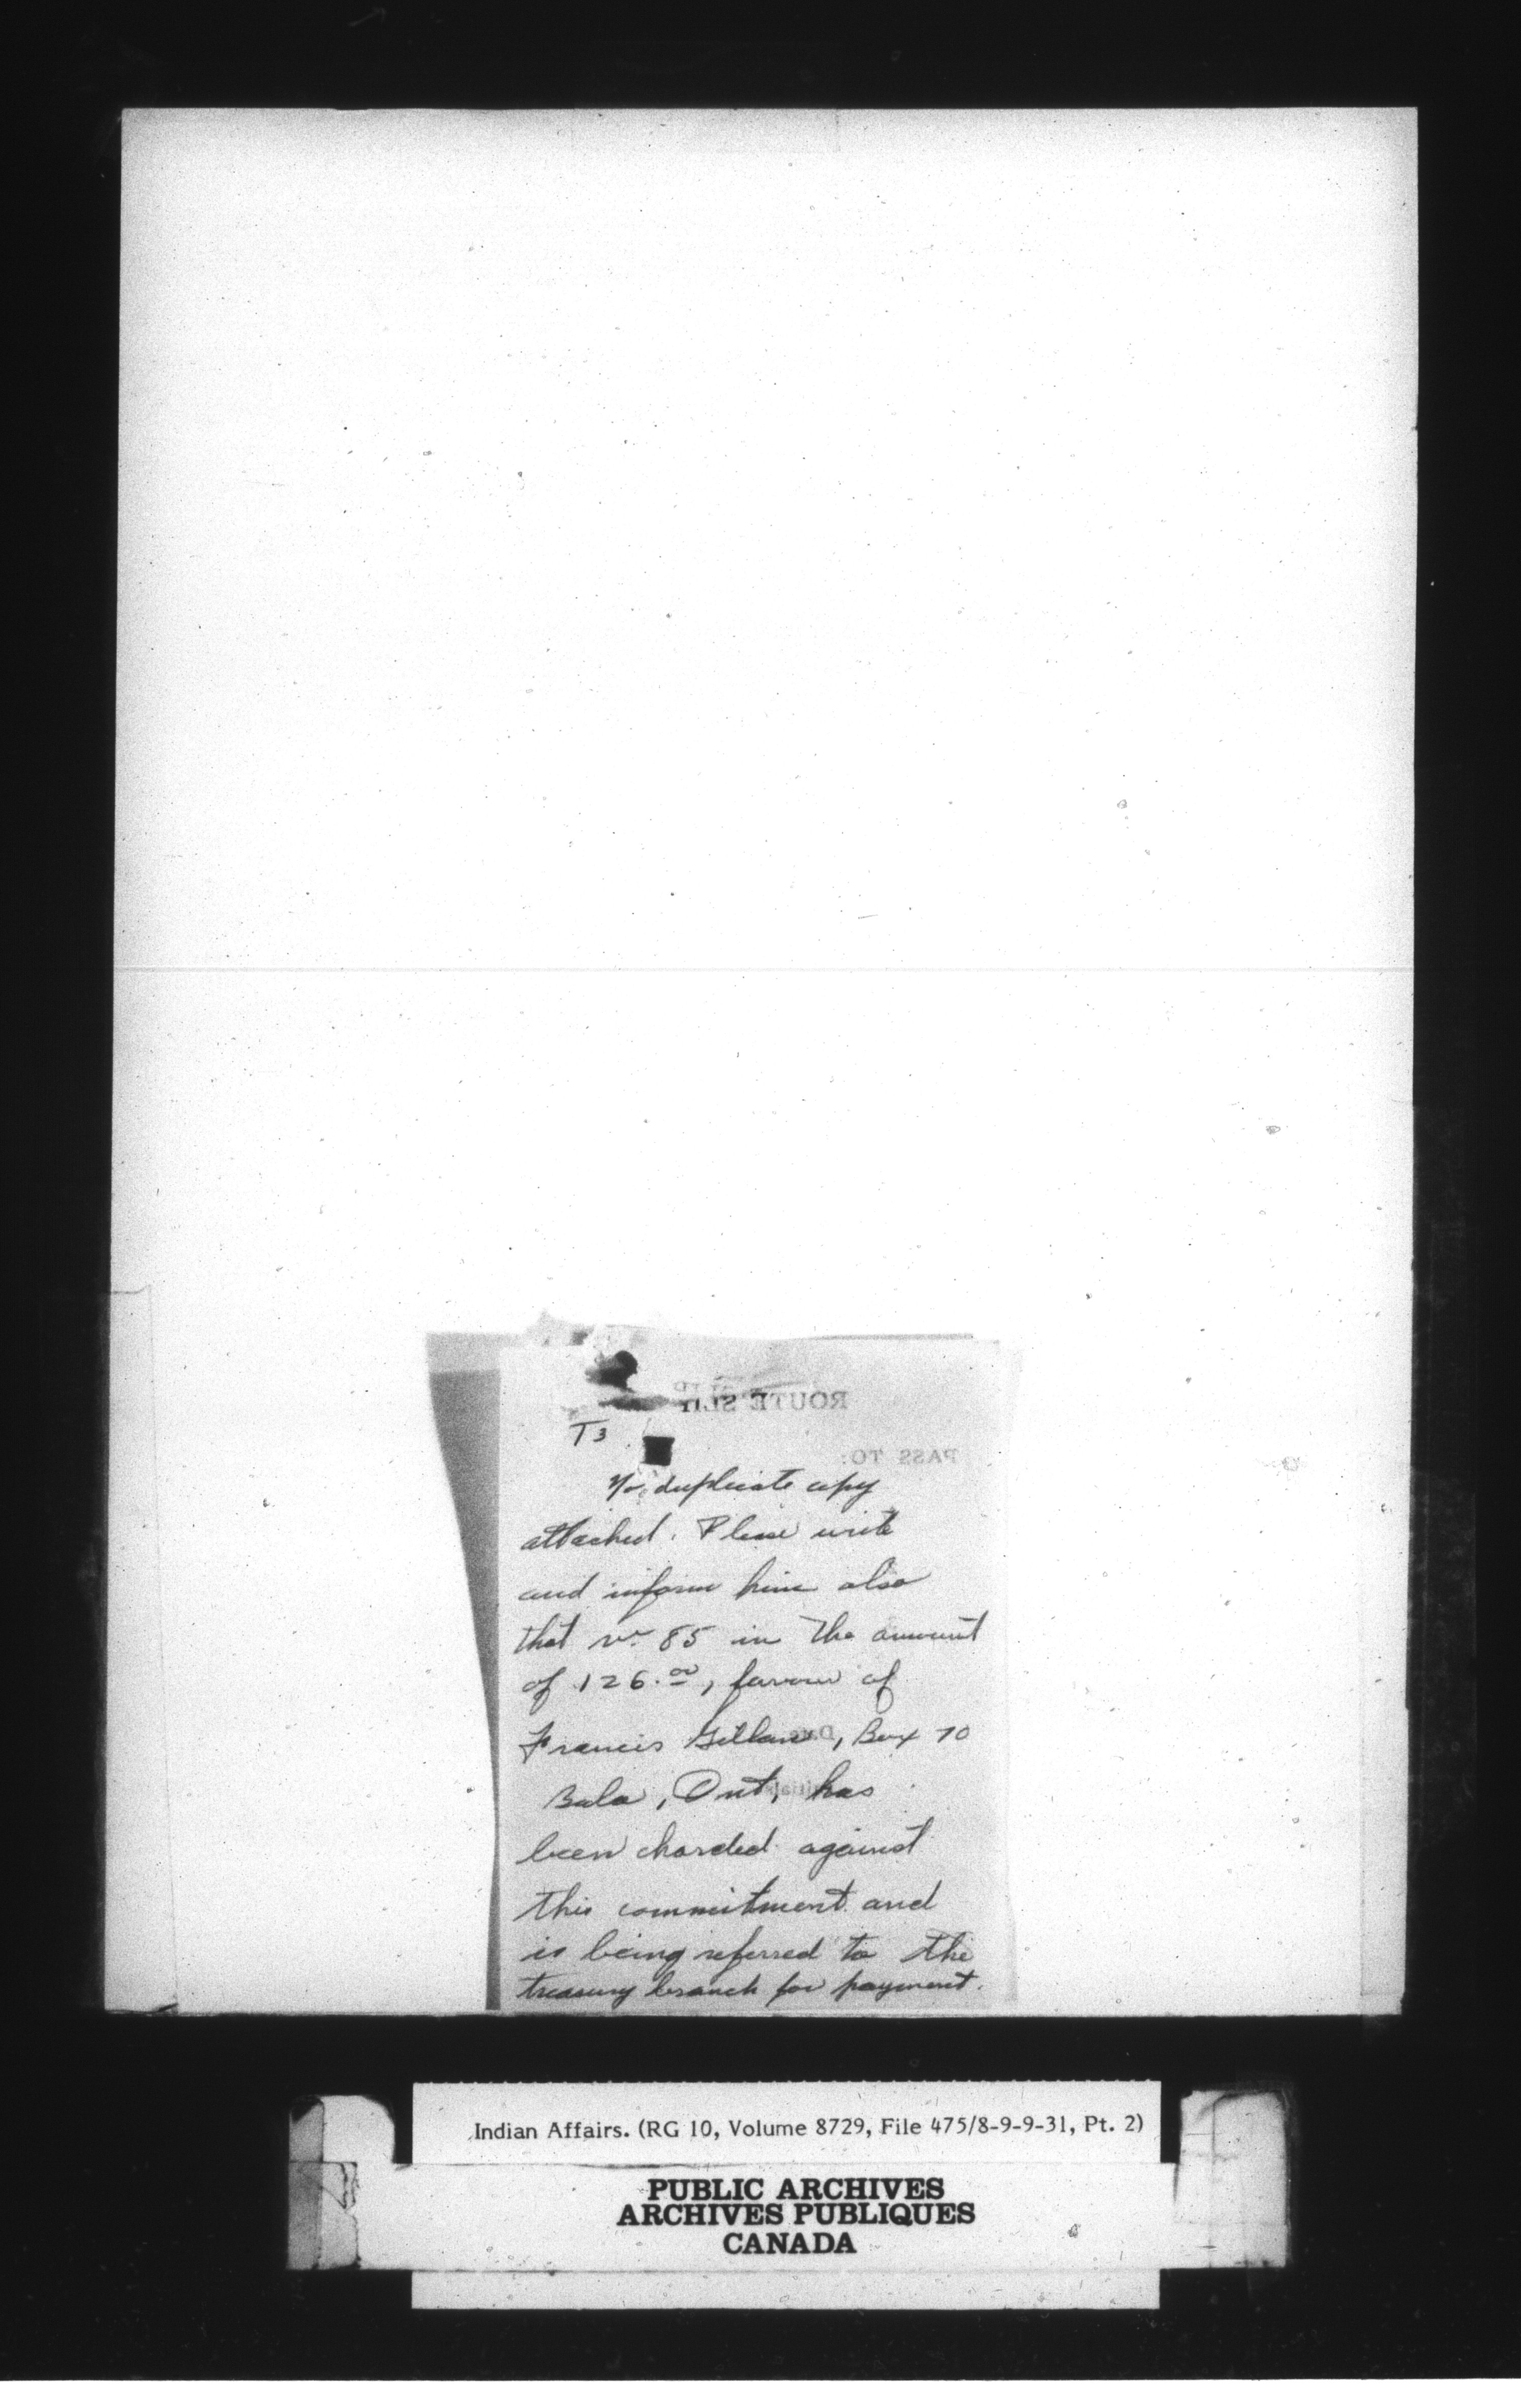 ROUTE SLIP
T3
PASS TO:
No duplicate copy
attached. Please write
and inform him also
that vr. 85 in the amount
of 126.00, favour of
Francis, Box 70
Bala, Ont, has
been charded against
this commitment and
is being referred to the
treasury branch for payment.
Indian Affairs. (RG 10, Volume 8729, File 475/8-9-9-31, Pt. 2)
PUBLIC ARCHIVES
ARCHIVES PUBLIQUES
CANADA